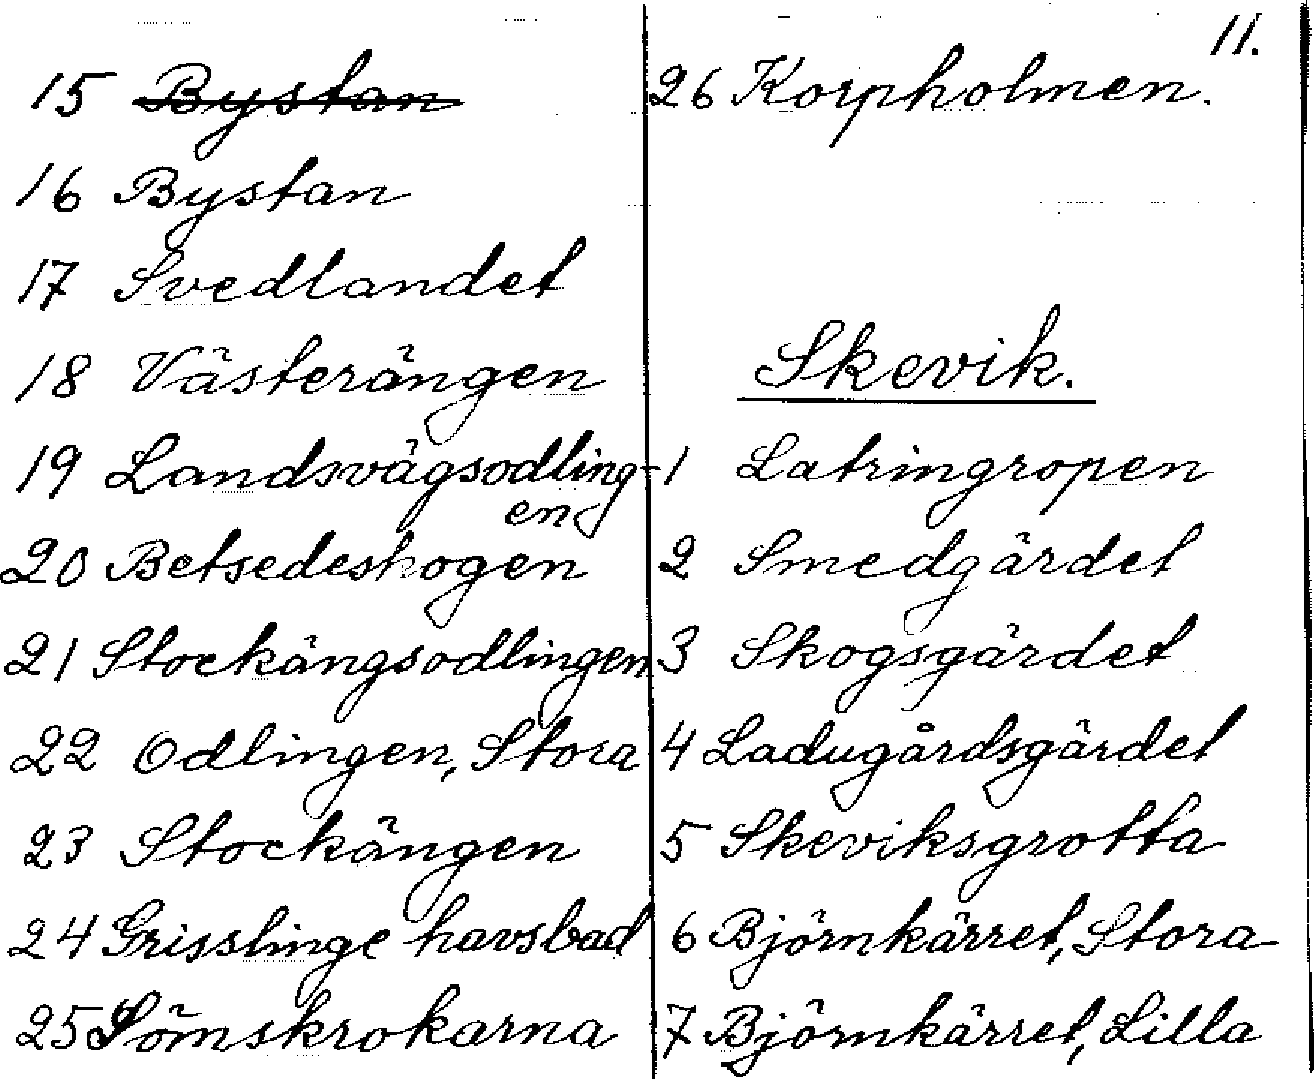 11.
15 Bystan
16 Bystan
17 Svedlandet
18 Västerängen
19 Landsvägsodling-
en
20 Betsedeskogen
21 Stockängsodlingen
22 Odlingen, Stora
23 Stockängen
24 Grisslinge havsbad
25 Sömskrokarna
26 Korpholmen.
Skevik.
1 Latringropen
2 Smedgärdet
3 Skogsgärdet
4 Ladugårdsgärdet
5 Skeviksgrotta
6 Björnkärret, Stora
7 Björnkärret, Lilla